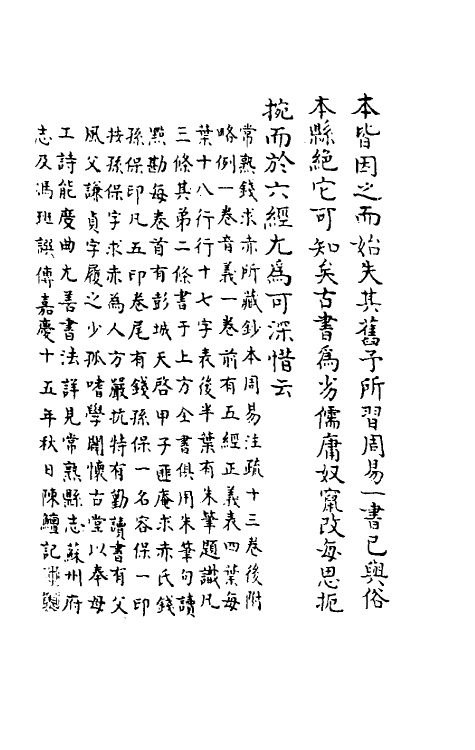 本皆因之而始失其舊予所習周易一書已與俗
本縣絕它可知矣古書為劣儒庸奴竄改每思扼
捥而於六經尤為可深惜云
常熟錢求赤所藏鈔本周易注疏十三卷後附
略例一卷音義一卷前有五經正義表四葉每
葉十八行行十七字表後半葉有朱筆題識凡
三條其弟二條書于上方全書俱用朱筆句讀
點勘每卷首有彭城天啓甲子匪庵求赤氏錢
孫保印凡五印卷尾有錢孫保一名容保一印
按孫保字求赤為人方嚴抗特有勤讀書有父
風父謙貞字履之少孤嗜學闢懷古堂以奉母
工詩能度曲尤善書法詳見常熟縣志蘇州府
志及馮班譔傳嘉慶十五年秋日陳鱣記